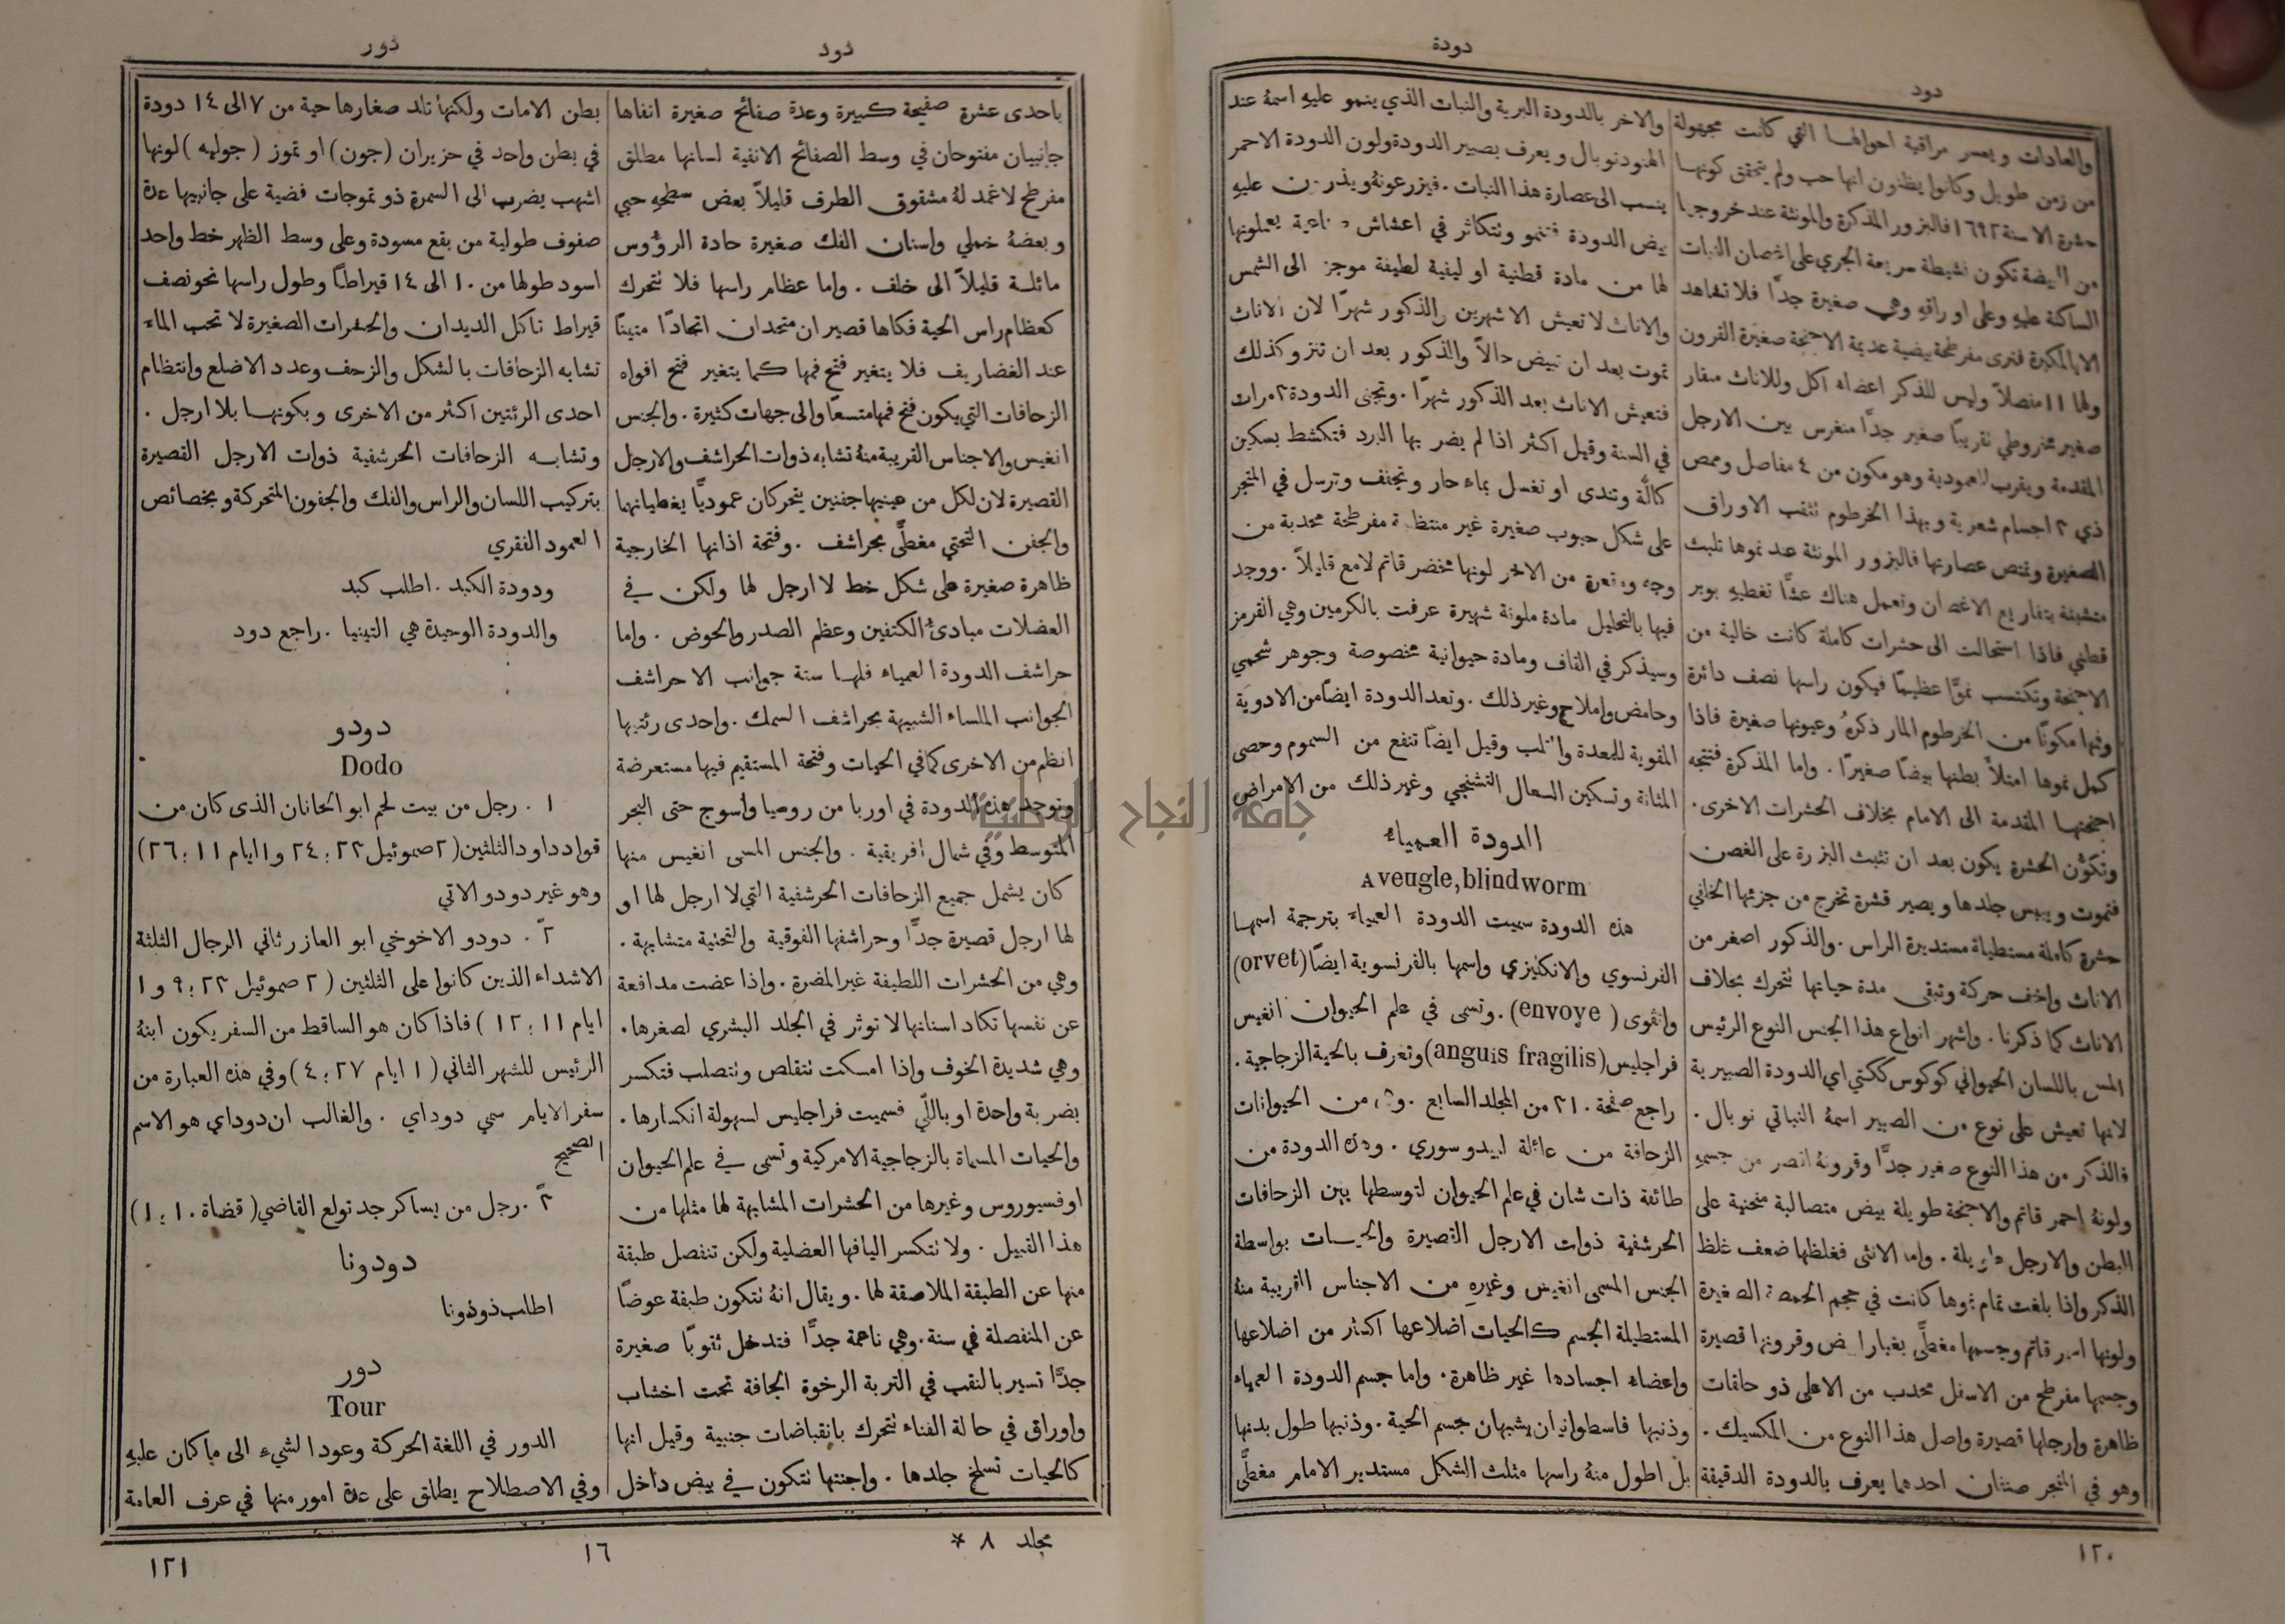 دود
دودة
والعادات ويعسر مراقبة احوالها التي كانت مجهولة
من زمن طويل وكانوا يظنون انها حب ولم يتحقق كونها
حشرة الا سنة ١٦٩٢ فالبزور المذكرة والمونثة عند خروجها
من البيضة تكون نشيطة سريعة الجري على اغصان النبات
الساكنة عليهِ وعلى اوراقهِ وهي صغيرة جدًّا فلا تشاهد
الا بالمكبرة فترى مفرطحة بيضية عديمة الاجنحة صغيرة القرون
ولها ١١ مفصلاً وليس للذكر اعضاء اكل وللاناث منقار
صغير مخروطي تقريبًا صغير جدًّا منغرس بين الارجل
المقدمة ويقرب للعمودية وهو مكون من ٤ مفاصل وممص
ذي ٢ اجسام شعرية وبهذا الخرطوم تثقب الاوراق
الصغيرة وتمتص عصارتها فالبزور المونثة عند نموها تلبث
متشبثة بتفاريع الاغصان وتعمل هناك عشًّا تغطيهِ بوبر
قطني فاذا استحالت الى حشرات كاملة كانت خالية من
الاجنحة وتكتسب نموًّا عظيمًا فيكون راسها نصف دائرة
وفمها مكونًا من الخرطوم المار ذكرهُ وعيونها صغيرة فاذا
كمل نموها امتلأ بطنها بيضًا صغيرًا . واما المذكرة فتتجه
اجنحتها المقدمة الى الامام بخلاف الحشرات الاخرى .
وتكوّن الحشرة يكون بعد ان تثبت البزرة على الغصن
فتموت ويببس جلدها ويصير قشرة تخرج من جزئها الخلفي
حشرة كاملة مستطيلة مستديرة الراس . والذكور اصغر من
الاناث واخف حركة وتبقى مدة حياتها تتحرك بخلاف
الاناث كما ذكرنا . واشهر انواع هذا الجنس النوع الرئيس
المسى باللسان الحيواني كوكوس ككتي اي الدودة الصبيرية
لانها تعيش على نوع من الصبير اسمهُ النباتي نوبال .
فالذكر من هذا النوع صغير جدًّا وقرونهُ اقصر من جسمهِ
ولونهُ احمر قاتم والاجنحة طويلة بيض متصالبة منحنية على
البطن والارجل طويلة . واما الانثى فغلظها ضعف غلظ
الذكر واذا بلغت تمام نموها كانت في حجم الحمصة الصغيرة
ولونها اسمر قاتم وجسمها مغطًّى بغبار ابيض وقرونها قصيرة
وجسمها مفرطح من الاسفل محدب من الاعلى ذو حلقات
ظاهرة وارجلها قصيرة واصل هذا النوع من المكسيك .
وهو في المتجر صنفان احدهما يعرف بالدودة الدقيقة
والاخر بالدودة البرية والنبات الذي ينمو عليهِ اسمهُ عند
الهنود نوبال ويعرف بصبير الدودة ولون الدودة الاحمر
ينسب الى عصارة هذا النبات . فيزرعونهُ ويذرون عليهِ
بيض الدودة فتنمو وتتكاثر في اعشاش صناعية يعملونها
لها من مادة قطنية او ليفية لطيفة موجز الى الشمس
والاناث لا تعيش الا شهرين والذكور شهرًا لان الاناث
تموت بعد ان تبيض حالاً والذكور بعد ان تنزو كذلك
فتعيش الاناث بعد الذكور شهرًا . وتجنى الدودة ٢ مرات
في السنة وقيل اكثر اذا لم يضر بها البرد فتكشط بسكين
كالّة وتندى او تغسل بماء حار وتجفف وترسل في المتجر
على شكل حبوب صغيرة غير منتظمة مفرطحة محدبة من
وجه ومقعرة من الاخر لونها مخضر قاتم لامع قليلاً . ووجد
فيها بالتحليل مادة ملونة شهيرة عرفت بالكرمين وهي القرمز
وسيذكر في القاف ومادة حيوانية مخصوصة وجوهر شحمي
وحامض واملاح وغير ذلك . وتعد الدودة ايضًا من الادوية
المقوية للمعدة والقلب وقيل ايضًا تنفع من السموم وحصى
المثانة وتسكين السعال التشنجي وغير ذلك من الامراض
الدودة العمياء
Aveugle, blindworm
هذه الدودة سميت الدودة العمياء بترجمة اسمها
الفرنسوي والانكليزي واسمها بالفرنسوية ايضًا (orvet)
وانڤوى (envoye) . وتسمى في علم الحيوان انغيس
فراجليس (anguis fragilis) وتعرف بالحية الزجاجية .
راجع صفحة ٢١٠ من المجلد السابع . وهي من الحيوانات
الزحافة من عائلة ليبدوسوري . وهذه الدودة من
طائفة ذات شان في علم الحيوان لتوسطها بين الزحافات
الحرشفية ذوات الارجل القصيرة والحيات بواسطة
الجنس المسمى انغيس وغيرهِ من الاجناس القريبة منهُ
المستطيلة الجسم كالحيات اضلاعها اكثر من اضلاعها
واعضاء اجسادها غير ظاهرة . واما جسم الدودة العمياء
وذنبها فاسطوانيان يشبهان جسم الحية . وذنبها طول بدنها
بل اطول منهُ راسها مثلث الشكل مستدير الامام مغطًّى
١٢٠
دود
دور
باحدى عشرة صفيحة كبيرة وعدة صفائح صغيرة انفاها
جانبيان مفتوحان في وسط الصفائح الانفية لسانها مطلق
مفرطح لا غمد لهُ مشقوق الطرف قليلاً بعض سطحهِ حبي
وبعضهُ خملي واسنان الفك صغيرة حادة الرؤوس
مائلة قليلاً الى خلف . واما عظام راسها فلا تتحرك
كعظام راس الحية فكاها قصيران متحدان اتحادًا متينًا
عند الغضاريف فلا يتغير فتح فمها كما يتغير فتح افواه
الزحافات التي يكون فتح فمها متسعًا والى جهات كثيرة . والجنس
انغيس والاجناس القريبة منهُ تشابه ذوات الحراشف والارجل
القصيرة لان لكل من عينيها جفنين يتحركان عموديًّا يغطيانهما
والجفن التحتي مغطًّى بحراشف . وفتحة اذانها الخارجية
ظاهرة صغيرة على شكل خط لا ارجل لها ولكن في
العضلات مبادئ الكتفين وعظم الصدر والحوض . واما
حراشف الدودة العمياء فلها ستة جوانب الا حراشف
الجوانب الملساء الشبيهة بحراشف السمك . واحدى رئتيها
انظم من الاخرى كما في الحيات وفتحة المستقيم فيها مستعرضة
وتوجد هذه الدودة في اوربا من روصيا وأسوج حتى البحر
المتوسط وفي شمال افريقية . والجنس المسى انغيس منها
كان يشمل جميع الزحافات الحرشفية التي لا ارجل لها او
لها ارجل قصيرة جدًّا وحراشفها الفوقية والتحتية متشابهة .
وهي من الحشرات اللطيفة غير المضرة . واذا عضت مدافعة
عن نفسها تكاد اسنانها لا توثر في الجلد البشري لصغرها .
وهي شديدة الخوف واذا امسكت تتقلص وتتصلب فتكسر
بضربة واحدة او باللّي فسميت فراجليس لسهولة انكسارها .
والحيات المسماة بالزجاجية الامركية وتسمى في علم الحيوان
اوفسيوروس وغيرها من الحشرات المشابهة لها مثلها من
هذا القبيل . ولا تتكسر اليافها العضلية ولكن تنفصل طبقة
منها عن الطبقة الملاصقة لها . ويقال انهُ تتكون طبقة عوضًا
عن المنفصلة في سنة . وهي ناعمة جدًّا فتدخل ثقوبًا صغيرة
جدًّا تسير بالنقب في التربة الرخوة الجافة تحت اخشاب
واوراق في حالة الفناء تتحرك بانقباضات جنبية وقيل انها
كالحيات تسلخ جلدها . واجنتها تتكون في بيض داخل
بطن الامات ولكنها تلد صغارها حية من ٧ الى ١٤ دودة
في بطن واحد في حزيران (جون) او تموز (جوليه) لونها
اشهب يضرب الى السمرة ذو تموجات فضية على جانبيها عدة
صفوف طولية من بقع مسودة وعلى وسط الظهر خط واحد
اسود طولها من ١٠ الى ١٤ قيراطًا وطول راسها نحو نصف
قيراط تاكل الديدان والحشرات الصغيرة لا تحب الماء
تشابه الزحافات بالشكل والزحف وعدد الاضلع وانتظام
احدى الرئتين اكثر من الاخرى وبكونها بلا ارجل .
وتشابه الزحافات الحرشفية ذوات الارجل القصيرة
بتركيب اللسان والراس والفك والجفون المتحركة وبخصائص
العمود الفقري
ودودة الكبد . اطلب كبد
والدودة الوحيدة هي التينيا . راجع دود
دودو
Dodo
١ . رجل من بيت لحم ابو الحانان الذي كان من
قواد داود الثلثين (٢ صموئيل ٢٣ : ٢٤ و ١ ايام ١١ : ٢٦)
وهو غير دودو الاتي
٢ . دودو الاخوخي ابو العازر ثاني الرجال الثلثة
الاشداء الذين كانوا على الثلثين (٢ صموئيل ٢٣ : ٩ و ١
ايام ١١ : ١٢) فاذا كان هو الساقط من السفر يكون ابنهُ
الرئيس للشهر الثاني (١ ايام ٢٧ : ٤) وفي هذه العبارة من
سفر الايام سمي دوداي . والغالب ان دوداي هو الاسم
الصحيح
٣ . رجل من يساكر جد تولع القاضي (قضاة ١٠ : ١)
دودونا
اطلب ذوذونا
دور
Tour
الدور في اللغة الحركة وعود الشيء الى ما كان عليهِ
وفي الاصطلاح يطلق على عدة امور منها في عرف العامة
مجلد ٨ *
١٦
١٢١
جامعة النجاح الوطنية